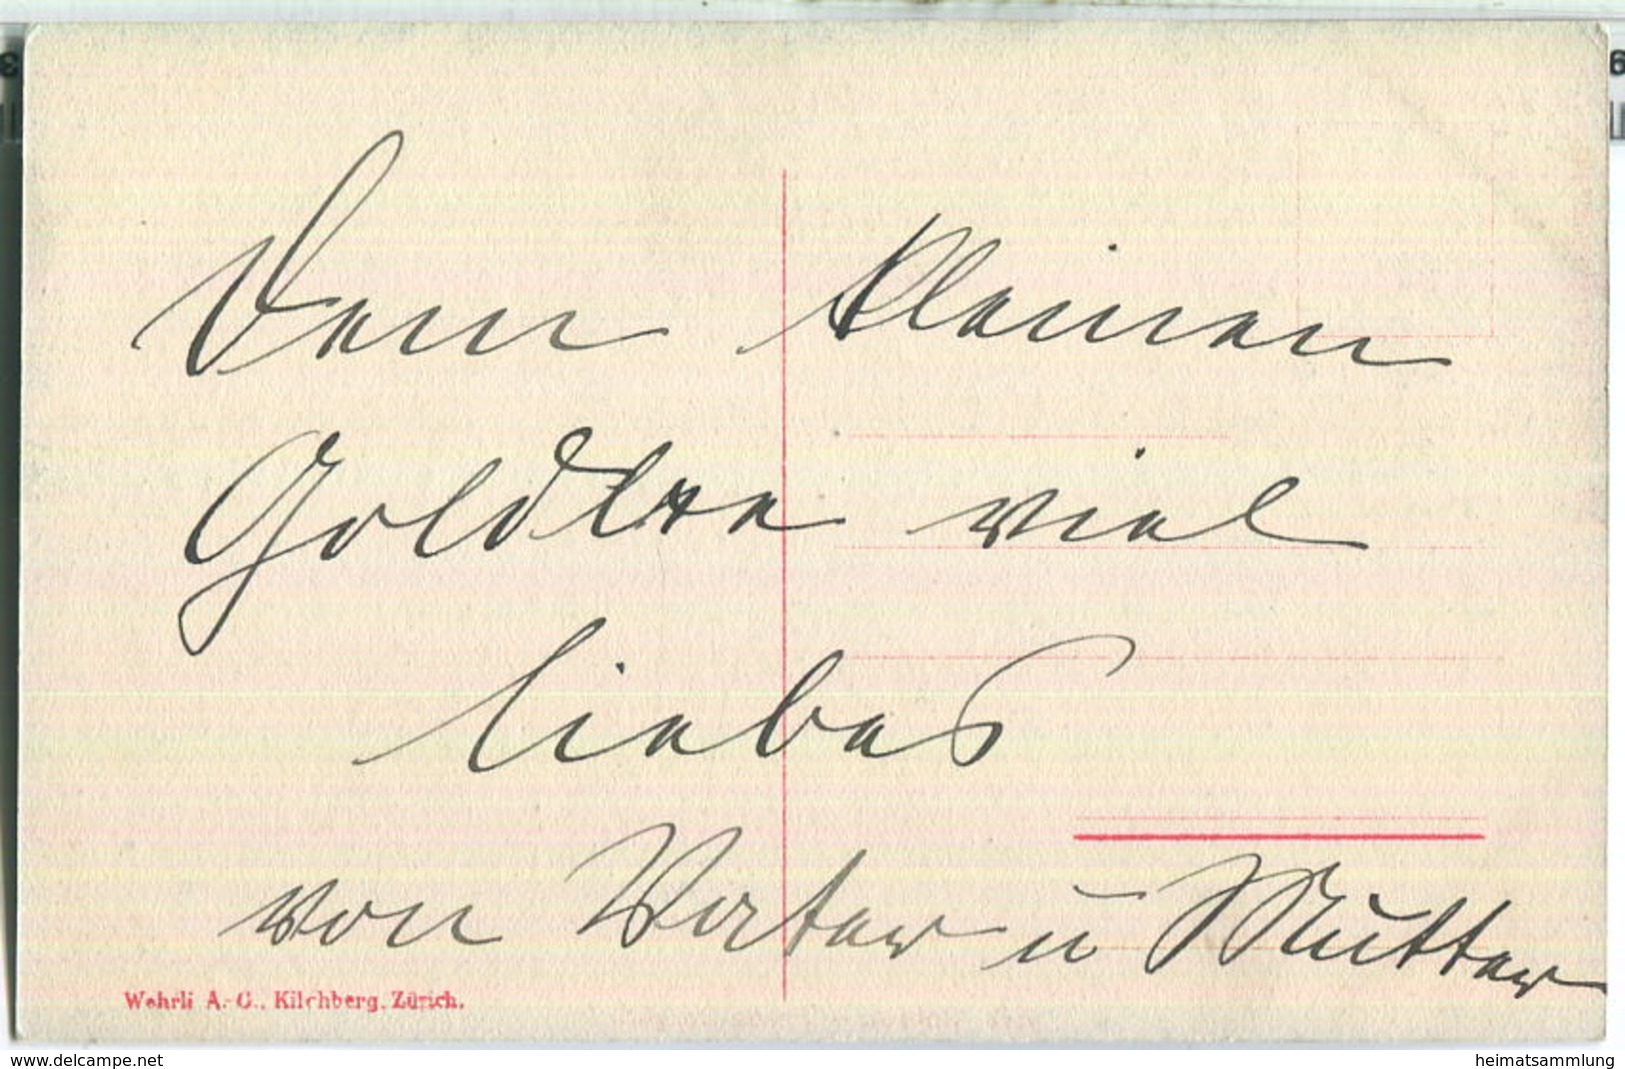 Dem kleinen
viel
liebes
von Vater u Mutter
Wehrli A.-G., Kilchberg, Zürich.
delcampe.net
heimatsammlung
3
9